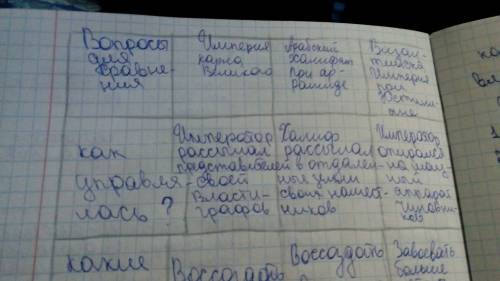 Вопросы
для
сравне-
ния
Империя
Карла
Великого
Арабский
Халифат
при ар-
рашиде
Визан-
тийская
Империя
при
Юстини-
ане
как
управля-
лась?
Император
рассылал
представителей
своей
Власти-
графов
Халиф
рассылал
в отдален-
ные земли
своих намест-
ников
Император
опирался
на мощ-
ный
аппарат
Чиновни-
ков
какие
Воссоздать
Воссоздать
Завоевать
больше